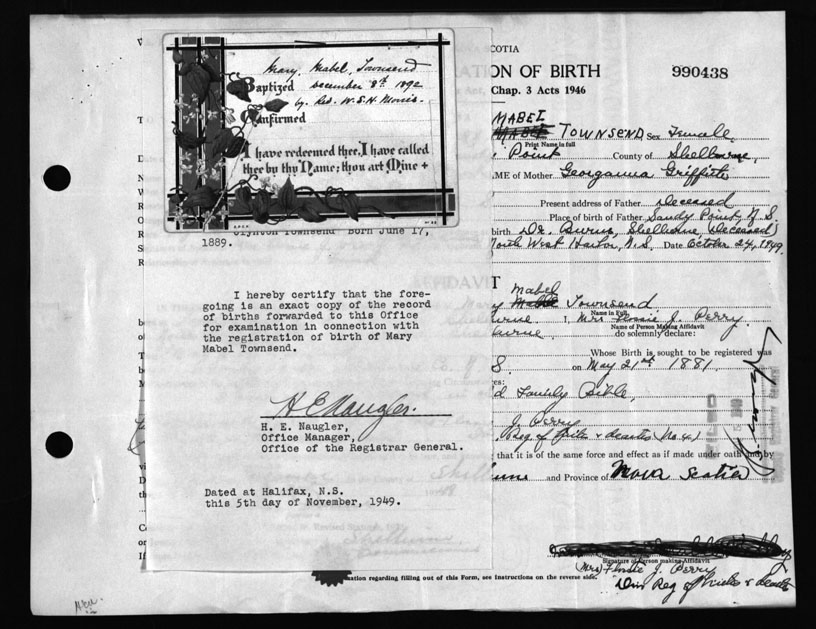 Mary, Mabel, Townsend
Baptized December 8th 1892
by Rev. W.S.H. Morris.
Confirmed
I have redeemed thee, I have called
thee by thy Name; thou art Mine +
Townsend Born June 17,
1889.
I hereby certify that the fore-
going is an exact copy of the record
of births forwarded to this Office
for examination in connection with
the registration of birth of Mary
Mabel Townsend.
H E Naugler.
H. E. Naugler,
Office Manager,
Office of the Registrar General.
Dated at Halifax, N.S.
this 5th day of November, 1949.
COTIA
ON OF BIRTH 990438
Chap. 3 Acts 1946
MABEL
TOWNSEND Sex Female
Print Name in full
Point County of Shelburne
ME of Mother Georganna Griffith
Present address of Father Deceased
Place of birth of Father Sandy Point N.S.
birth Dr. Burns, Shelburne, (Deceased)
North West Harbor, N.S. Date October 24, 1949.
T
Mabel
y Townsend
Name in Full
urne I, Mrs Flossie J. Perry
Name of Person Making Affidavit
burne do solemnly declare:
Whose Birth is sought to be registered was
S. on May 21st 1881
res:
d Family Bible,
J. Perry
Reg. of births & deaths No 41
that it is of the same force and effect as if made under oath and by
and Province of Nova Scotia
Signature of Person making Affidavit
(Mrs) Flossie J. Perry
Div Reg of births & deaths
mation regarding filling out of this Form, see Instructions on the reverse side.